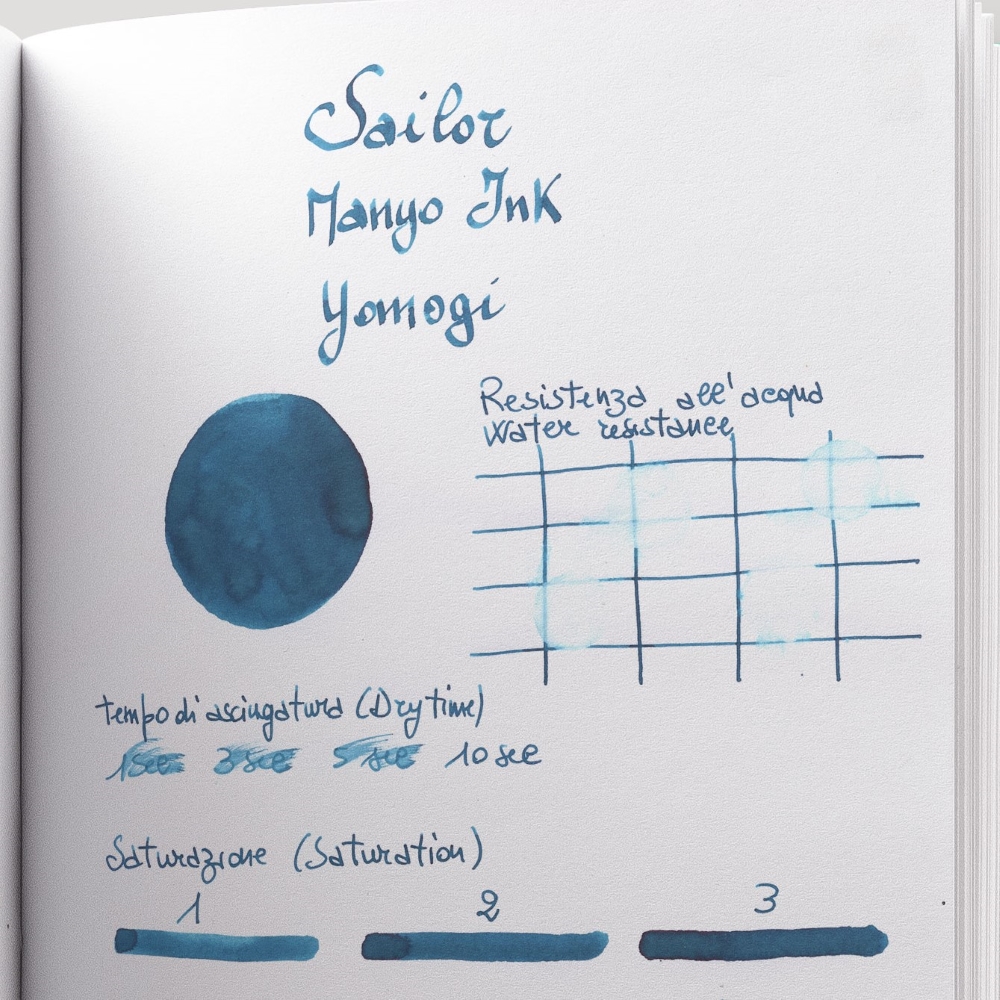 Sailor
Manyo Ink
Yomogi
Resistenza all'acqua
Water resistance
tempo di asciugatura (Dry time)
1 sec 3 sec 5 sec 10 sec
Saturazione (Saturation)
1 2 3